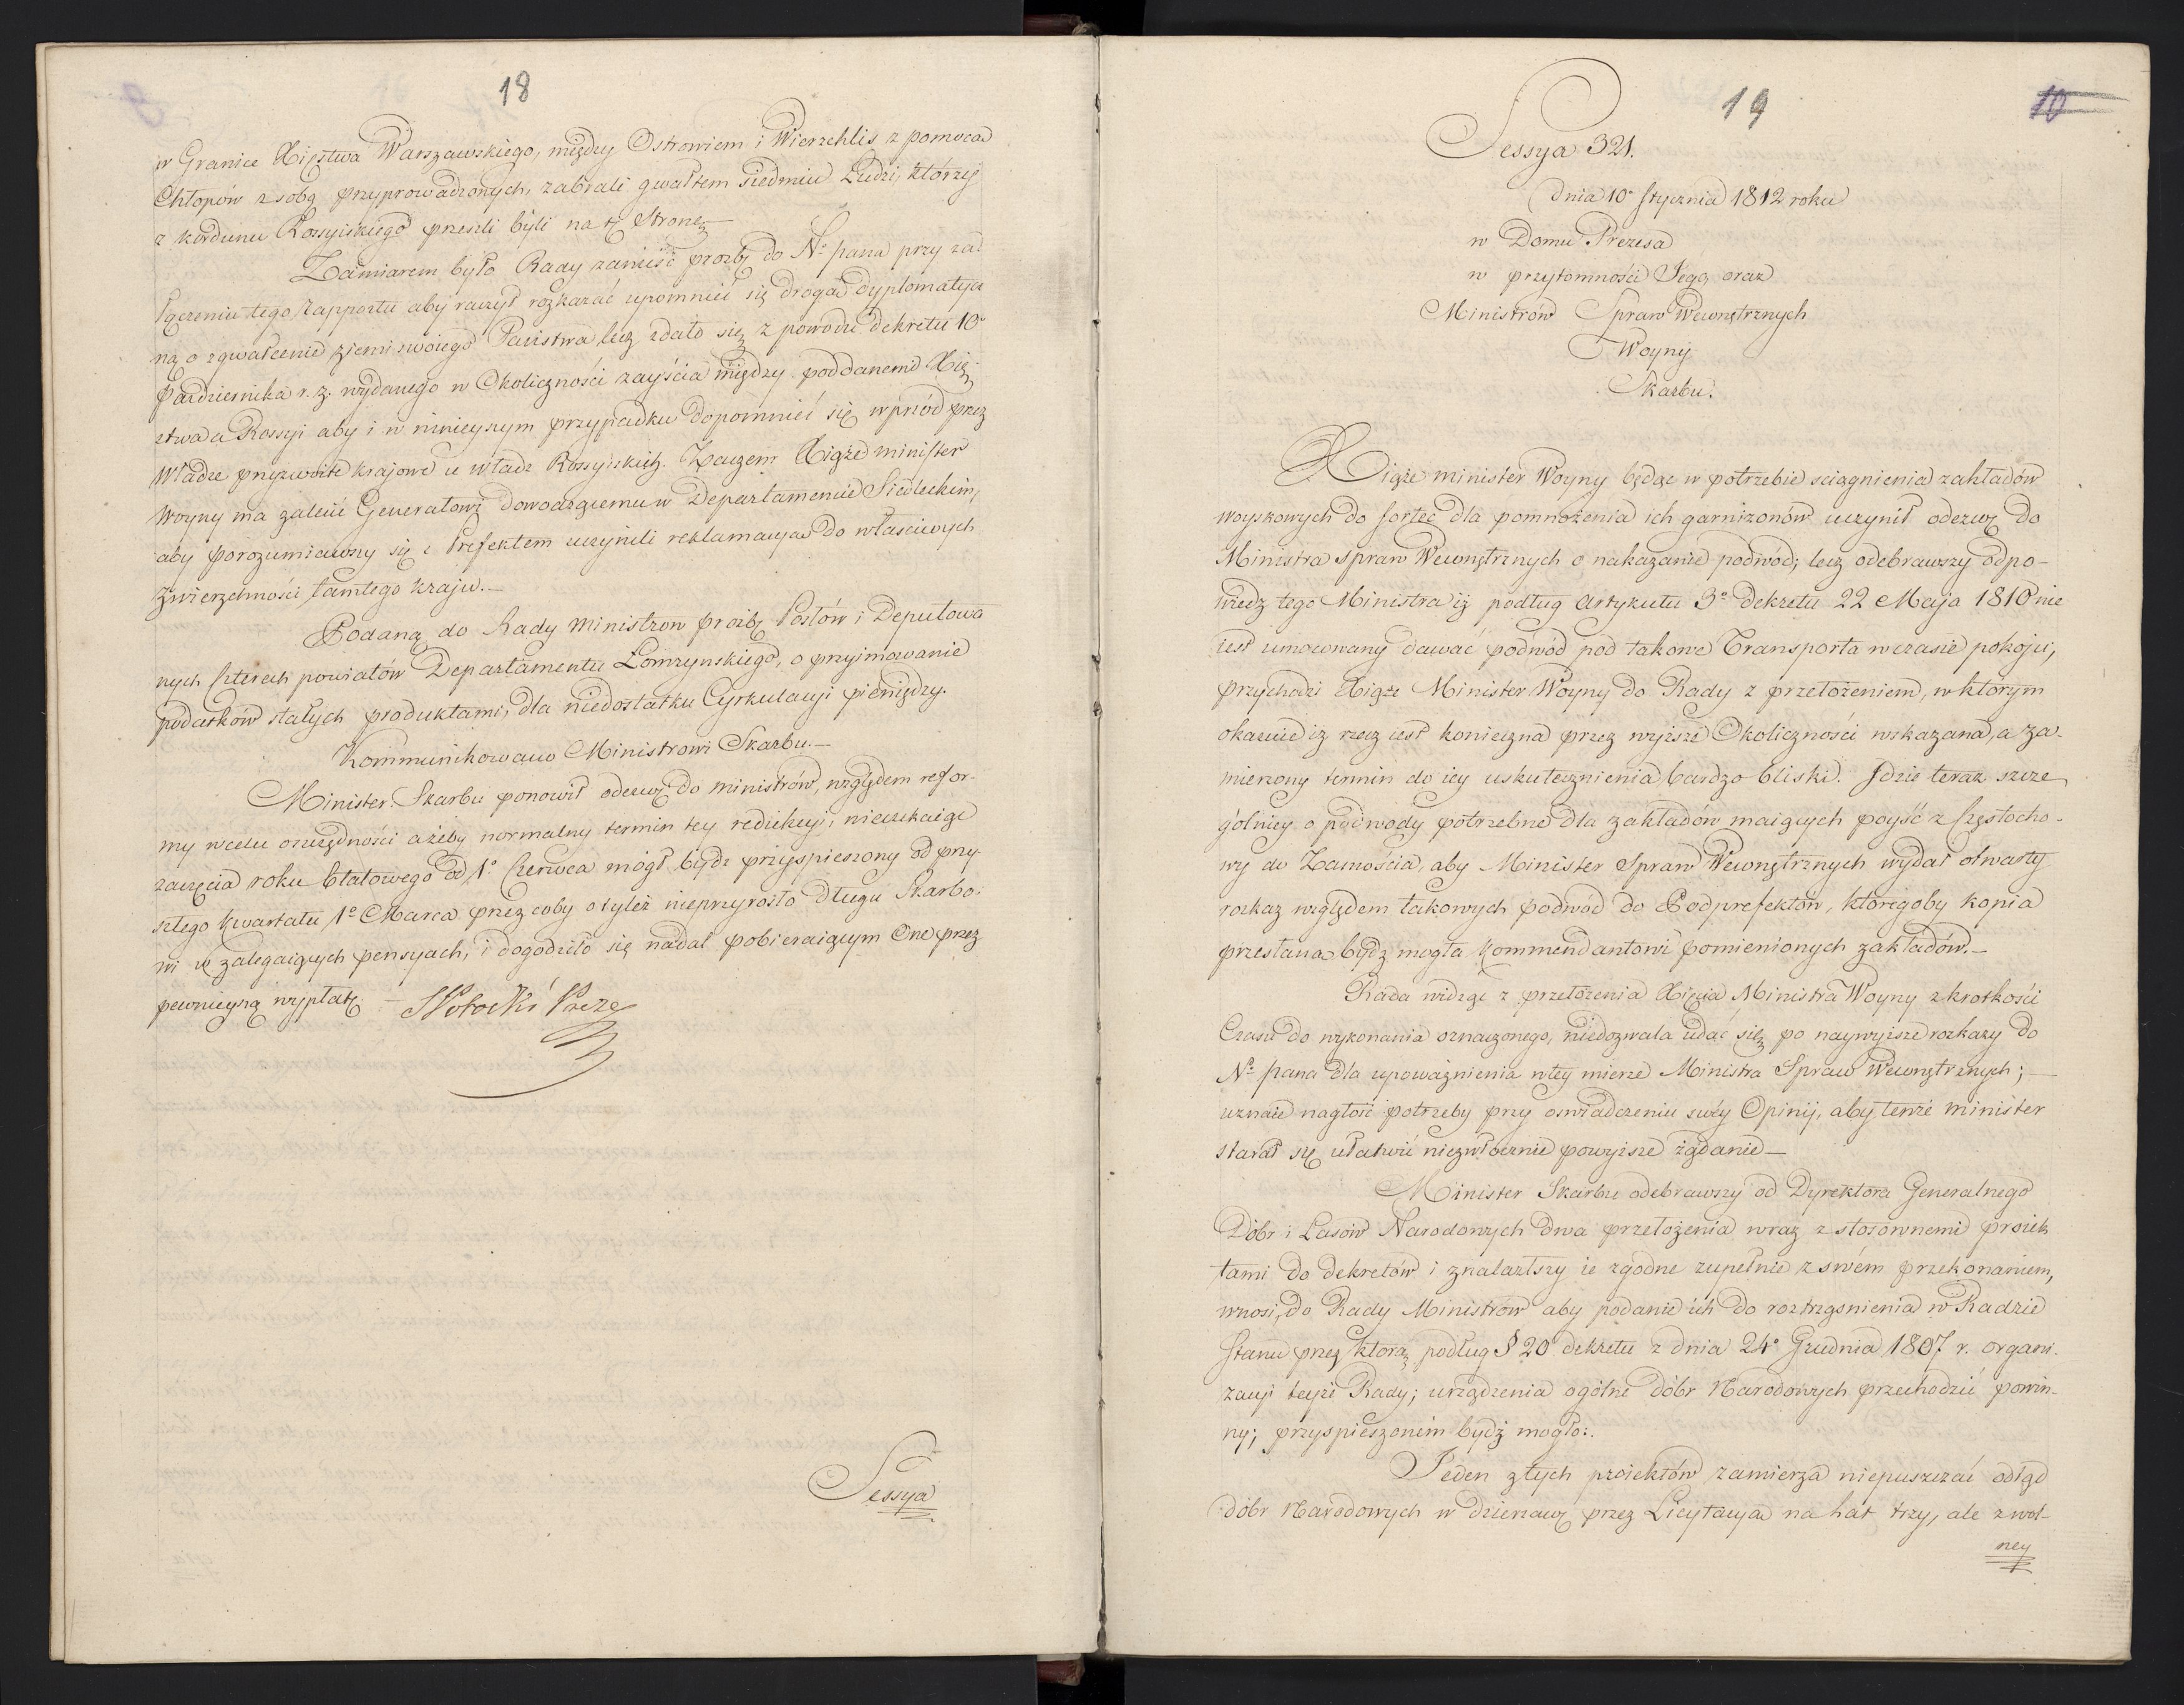 18
w Granice Xięstwa Warszawskiego, między Ostrowiem i Wierzchlis z pomocą
Chłopów z sobą przyprowadzonych, zabrali gwałtem siedmiu Ludzi, którzy
z kordunu Rossyiskiego przeszli byli na tę Stronę
Zamiarem było Rady zanieść prozbę do Nº pana przy za-
łączeniu tego rapportu aby raczył rozkazać upomnieć się drogą dyplomatycz
ną o zgwałcenie ziemi swoiego Państwa lecz zdało się z powodu dekretu 10º
Pazdziernika r. z. wydanego w Okoliczności zayścia między poddanemi Xię-
ztwa a Rossyi aby i w ninieyszym przypadku dopomnieć się wprzód przez
Władze przyzwoite krajowe u władz Rossyiskich. Zaczem Xiąże minister
Woyny ma zalecić Generałowi dowodzącemu w Departamencie Siedleckim,
aby porozumiawszy się z Prefektem uczynili reklamacyą do właściwych
zwierzchności tamtego kraju.—
Podaną do Rady Ministrow prozbę Posłów i Deputowa
nych czterech powiatów Departamentu Łomzynskiego, o przyimowanie
podatków stałych produktami, dla niedostatku Cyrkulacyi pieniędzy.
Kommunikowano Ministrowi Skarbu.—
Minister Skarbu ponowił odezwę do ministrów, względem refor-
my w celu oszczędności ażeby normalny termin tey redukcyi, nieczekaiąc
zaczęcia roku Etatowego od 1º Czerwca mógł bydź przyspieszony od przy-
szłego kwartału 1º Marca przez coby o tyleż nieprzyrosło długu Skarbo-
wi w zalegaiących pensyach, i dogodziło się nadal pobieraiącym One przez
pewnieyszą wypłatę. — SPotocki Preze
Sessya
19
10
Sessya 321.
dnia 10º Stycznia 1812 roku
w Domu Prezesa
w przytomności Jego, oraz
Ministrów Spraw Wewnętrznych
Woyny
Skarbu.
Xiąże minister Woyny będąc w potrzebie sciągnienia zakładów
woyskowych do fortec dla pomnożenia ich garnizonów uczynił odezwę do
Ministra spraw Wewnętrznych o nakazanie podwod; lecz odebrawszy odpo-
wiedz tego Ministra iż podług Artykułu 3º dekretu 22 Maja 1810 nie
iest umocowany dawać podwód pod takowe Transporta w czasie pokoju,
przychodzi Xiąże Minister Woyny do Rady z przełożeniem, w którym
okazuie iż rzecz iest konieczna przez wyższe Okoliczności wskazana, a za-
mierzony termin do iey uskutecznienia bardzo bliski. Jdzie teraz szcze
gólniey o podwody potrzebne dla zakładów maiących poyść z Częstocho-
wy do Zamościa, aby Minister Spraw Wewnętrznych wydał otwarty
rozkaz względem takowych podwód do Podprefektów, którego by kopia
przesłana bydź mogła kommendantowi pomienionych zakładów.—
Rada widząc z przełożenia Xięcia Ministra Woyny z krotkości
Czasu do wykonania oznaczonego, niedozwala udać się po naywyższe rozkazy do
Nº pana dla upoważnienia w tey mierze Ministra Spraw Wewnętrznych;—
uznaie nagłość potrzeby przy oswiadczeniu swéy Opinij, aby tenże minister
starał się ułatwić niezwłocznie powyższe żądanie—
Minister Skarbu odebrawszy od Dyrektora Generalnego
Dóbr i Lasów Narodowych dwa przełożenia wraz z stosownemi proiek
tami do dekretów i znalazłszy ie zgodne zupełnie z swém przekonaniem,
wnosi, do Rady Ministrów aby podanie ich do roztrząsnienia w Radzie
Stanu przez którą podług § 20 dekretu z dnia 24º Grudnia 1807 r. organi-
zacyi teyże Rady; urządzenia ogólne dóbr Narodowych przechodzić powin-
ny; przyspieszonem bydź mogło.
Jeden z tych proiektów zamierza niepuszczać odtąd
dóbr Narodowych w dzierzawę przez Licytacyą na lat trzy, ale z wol-
ney